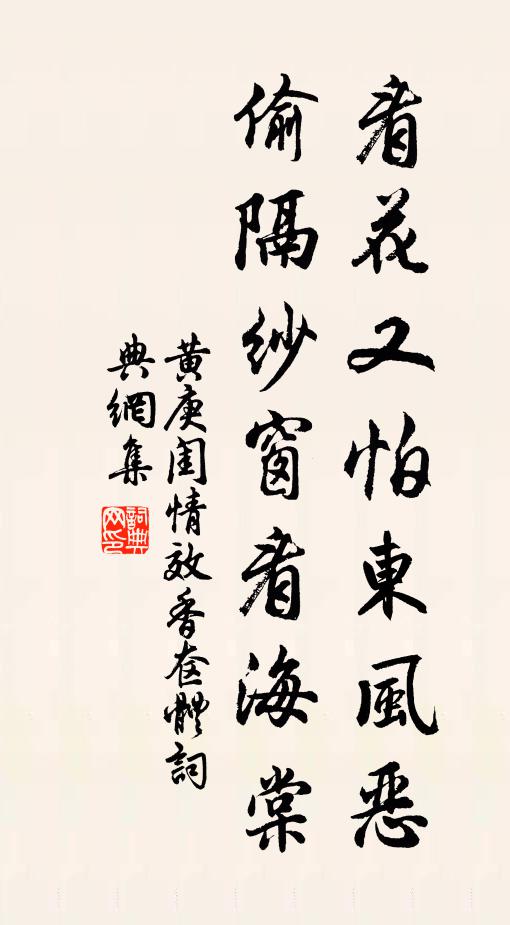 看花又怕東風惡
偷隔紗窗看海棠
黃庚閨情效香奩體詞
典網集
詞典網印